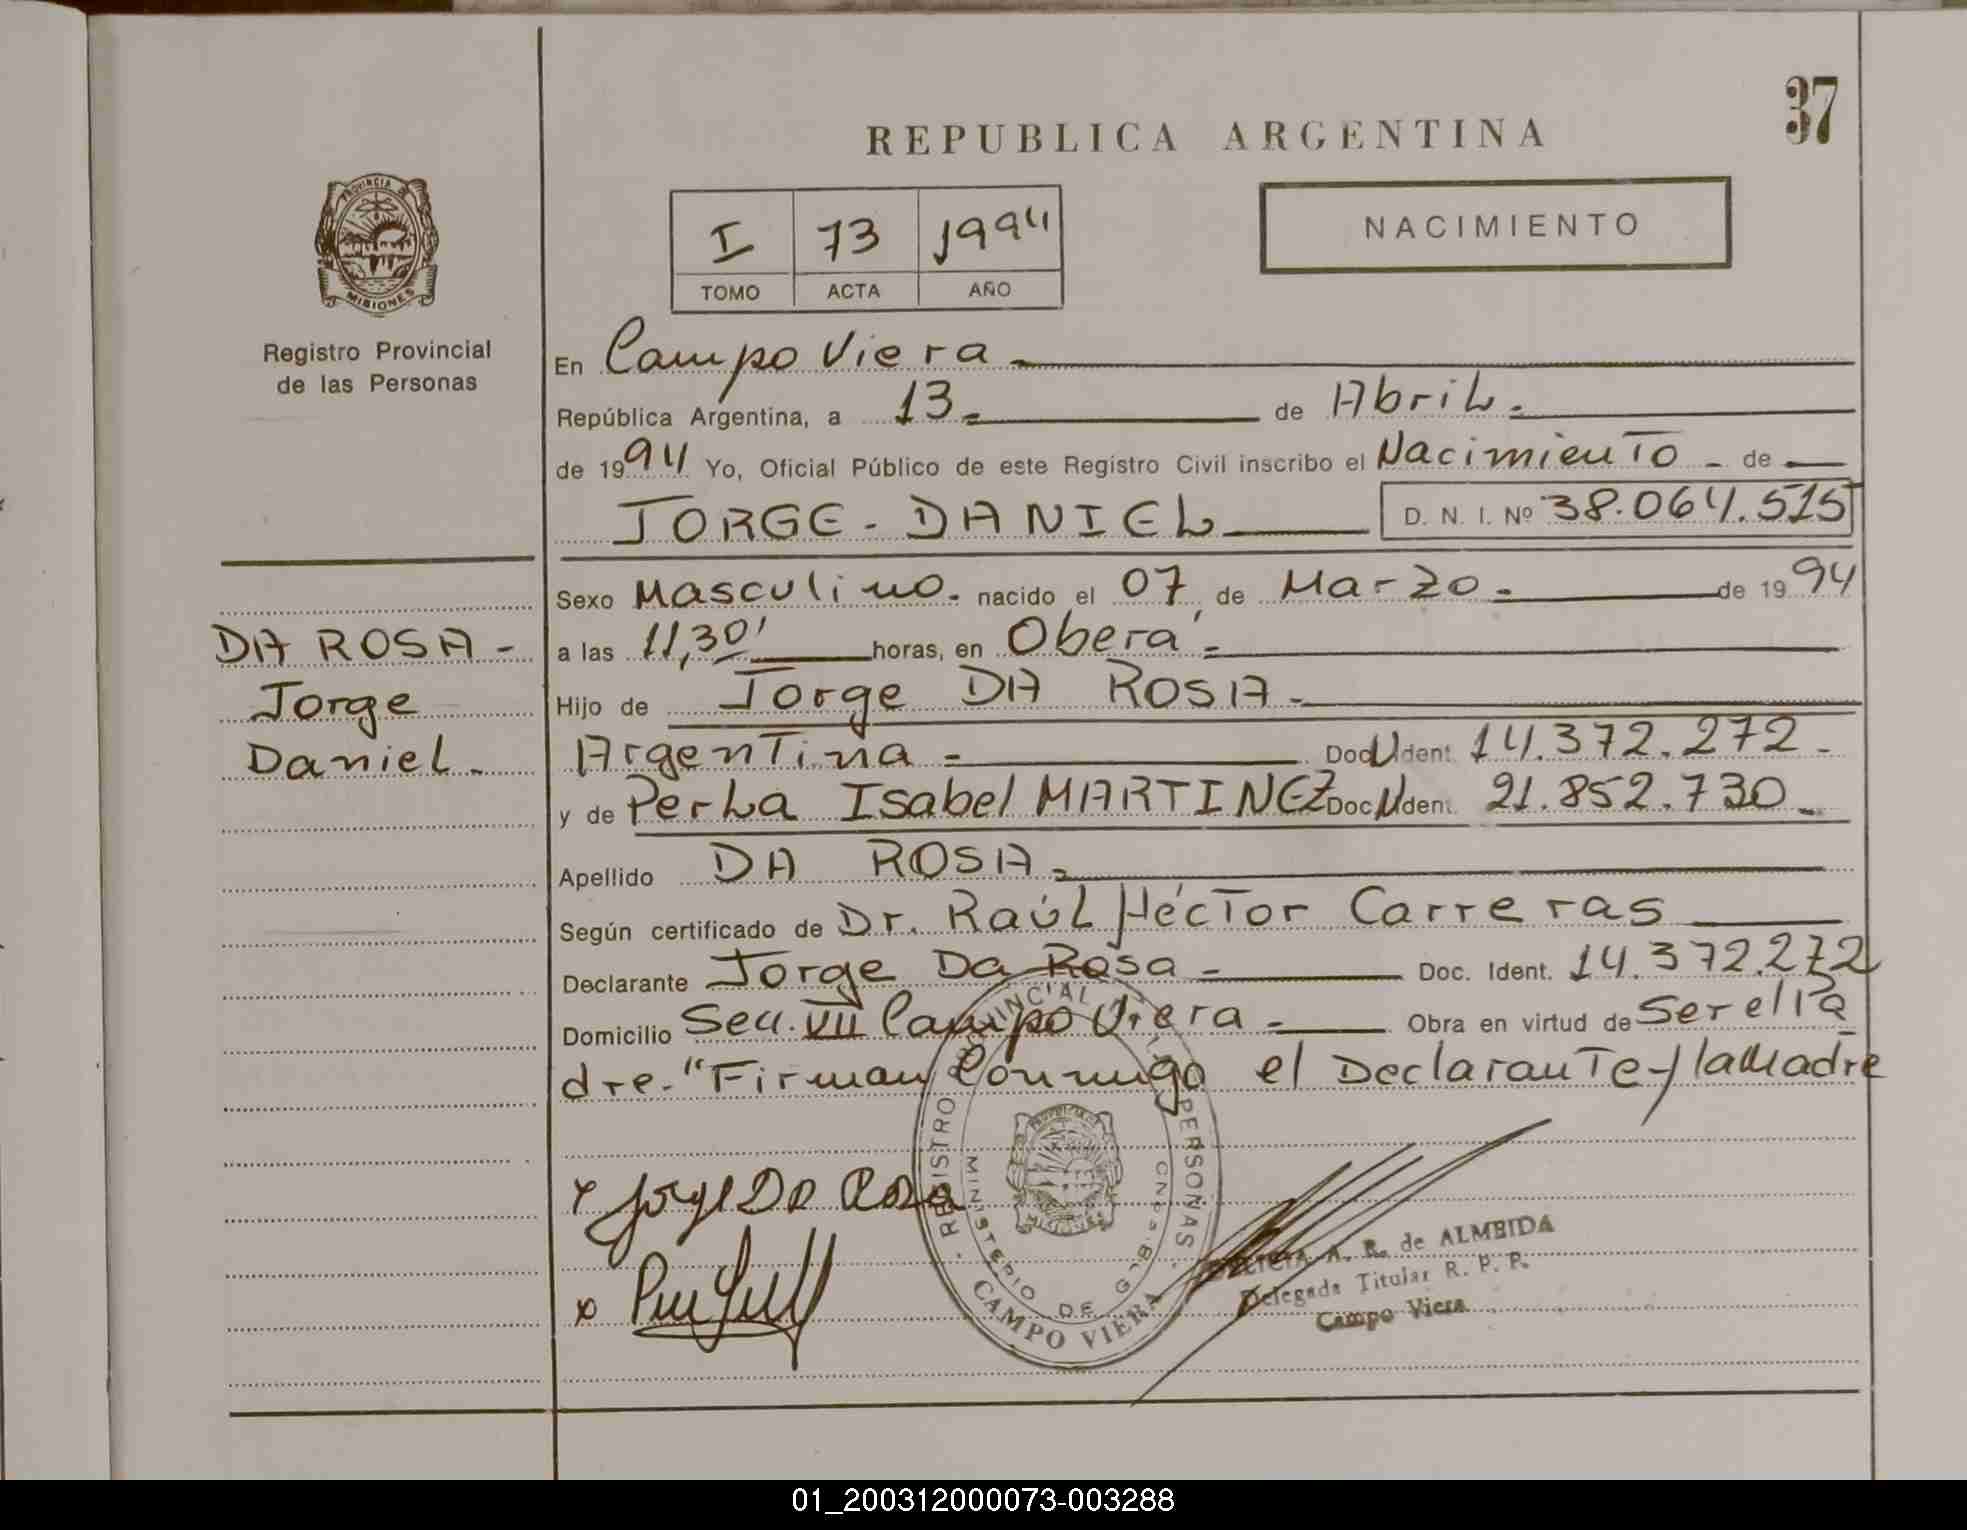 37
REPUBLICA ARGENTINA
I 73 1994
TOMO ACTA AÑO
NACIMIENTO
PROVINCIA DE
MISIONES
Registro Provincial
de las Personas
DA ROSA -
Jorge
Daniel.
En Campo Viera
República Argentina, a 13 de Abril.
de 1994 Yo, Oficial Público de este Registro Civil inscribo el Nacimiento de
JORGE - DANIEL D. N. I. Nº 38.064.515
Sexo Masculino. nacido el 07 de Marzo de 1994
a las 11,30' horas, en Oberá
Hijo de Jorge DA ROSA
Argentina Doc U Ident. 14.372.272.
y de Perla Isabel MARTINEZ Doc U Ident. 21.852.730
Apellido DA ROSA
Según certificado de Dr. Raúl Héctor Carreras
Declarante Jorge Da Rosa Doc. Ident. 14.372.272
Domicilio Secc. VII Campo Viera Obra en virtud de Ser el Pa
dre. "Firman Conmigo el Declarante y la Madre
x Jorge Da Rosa
x
REGISTRO PROVINCIAL PERSONAS
MINISTERIO DE
CAMPO VIERA
MISIONES
A. R. de ALMEIDA
Delegada Titular R. P. P.
Campo Viera
01_200312000073-003288